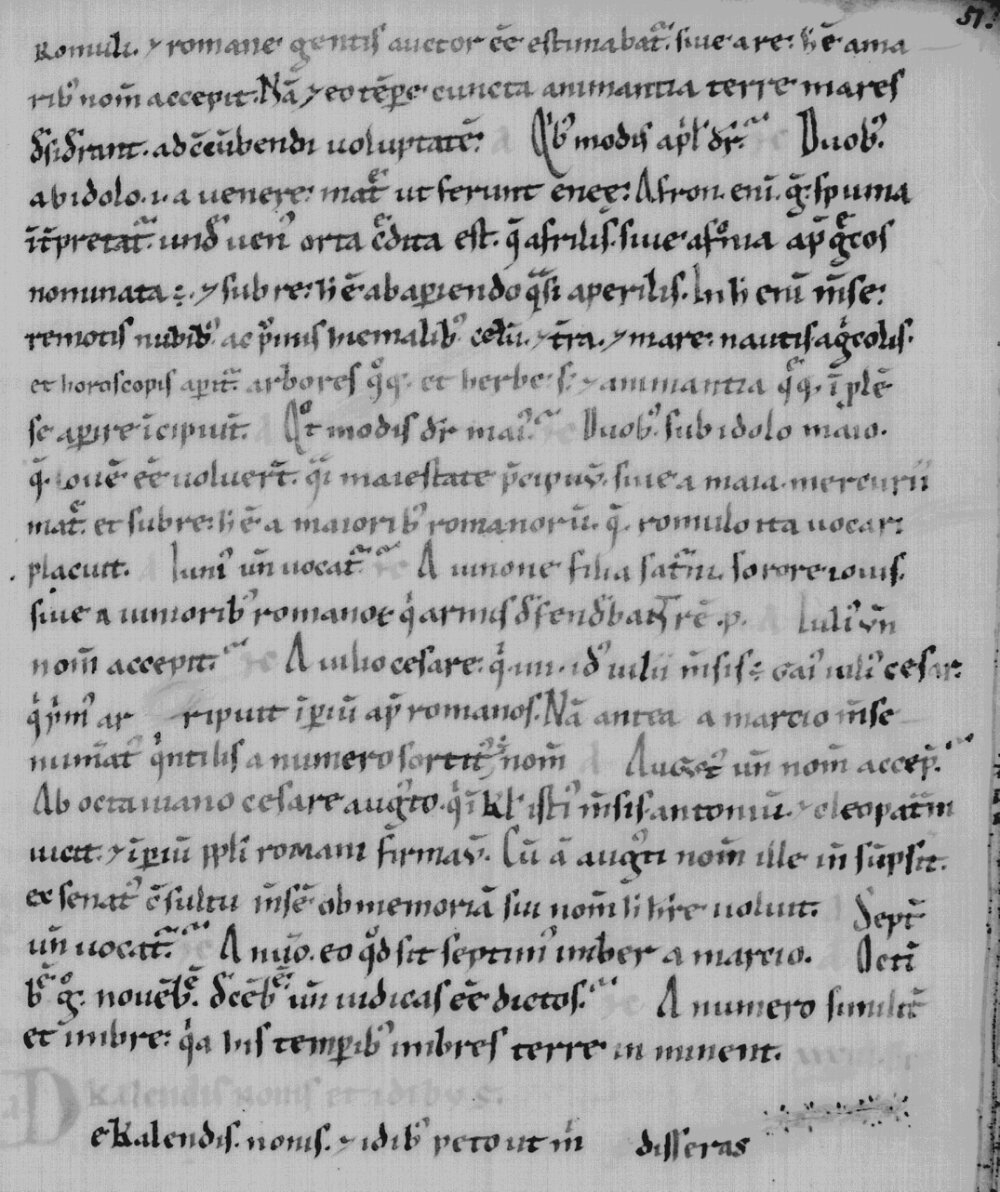 51.
Romuli. ⁊ romane gentis auctor eē estimabat᷑. siue a re. h̄ ē a ma
rib᷒ nom̄ accepit. Nā ⁊ eo tēꝑe cuncta animantia terre mares
d̄sid̄rant. ad c̄cūbendi uoluptatē. Qͥb᷒ modis ap̄l d̄r. Duob᷒.
ab idolo .i. a uenere. mat̄ ut ferunt eneę. Afron. eni. g̊. spuma
īt̄pretat᷑. und̄ uen᷒ orta c̄dita est. q̄ afrilis. siue afͦnia ap̄ g̃cos
nominata. ⁊ sub re. h̄ ē ab aꝑiendo qͣsi aperilis. In h̄ eni m̄se.
remotis nubib᷒ ac p̄inis hiemalib᷒ celū. ⁊ t̄ra. ⁊ mare. nautis agͥcolis.
et horoscopis aꝑit᷑. arbores qͦq. et herbe. s. ⁊ animantia qͦq. īplē
se aꝑire īcipiut̄. Qͦt modis d̄r mai᷒. Duob᷒. sub idolo maio.
q̄. iouē eē uoluer̄t. qͥ maiestate p̄cipuū. siue a maia. mercurii
mat̄. et sub re. h̄ ē a maiorib᷒ romanorū. q̄. romulo ita uocari
placuit. Iuni᷒ ūn uocat᷑. A iunone filia sat᷑ni. sorore iouis.
siue a iuniorib᷒ romanoꝝ qͥ armis d̄fend̄bat̄ rē .p. Iuli᷒ ūn
nom̄ accepit. A iulio cesare. qͥ .iiii. id᷒ iulii m̄sis. gai᷒ iuli᷒ cesar.
qͥ pͥm᷒ ar ripuit īꝑiū ap̄ romanos. Nā antea a marcio m̄se
num̄at᷒ qͥntilis a numero sortit᷒ nom̄ August᷒ ūn nom̄ accep̄.
Ab octauiano cesare aug᷒to. qͥ ī kł isti᷒ m̄sis. antoniū. ⁊ cleopat᷑m
uicit. ⁊ īꝑiū ppłi romani firmaū. Cū ā aug᷒ti nom̄ ille īn sūpsit.
ex senat᷒ c̄sultu m̄sē ob memoriā sui nom̄ h̄ h̄re uoluit. Sept̄
ūn uocat᷑. A nūo. eo qͦd sit septim᷒ imber a marcio. Octī
b̄ g̊. nouēb̄. d̄cēb̄ ūn iudicas eē dictos. A numero similit̄
et imbre. qͥa his temꝑib᷒ imbres terre in minent.
e Kalendis. nonis. ⁊ idib᷒ peto ut m̄ disseras